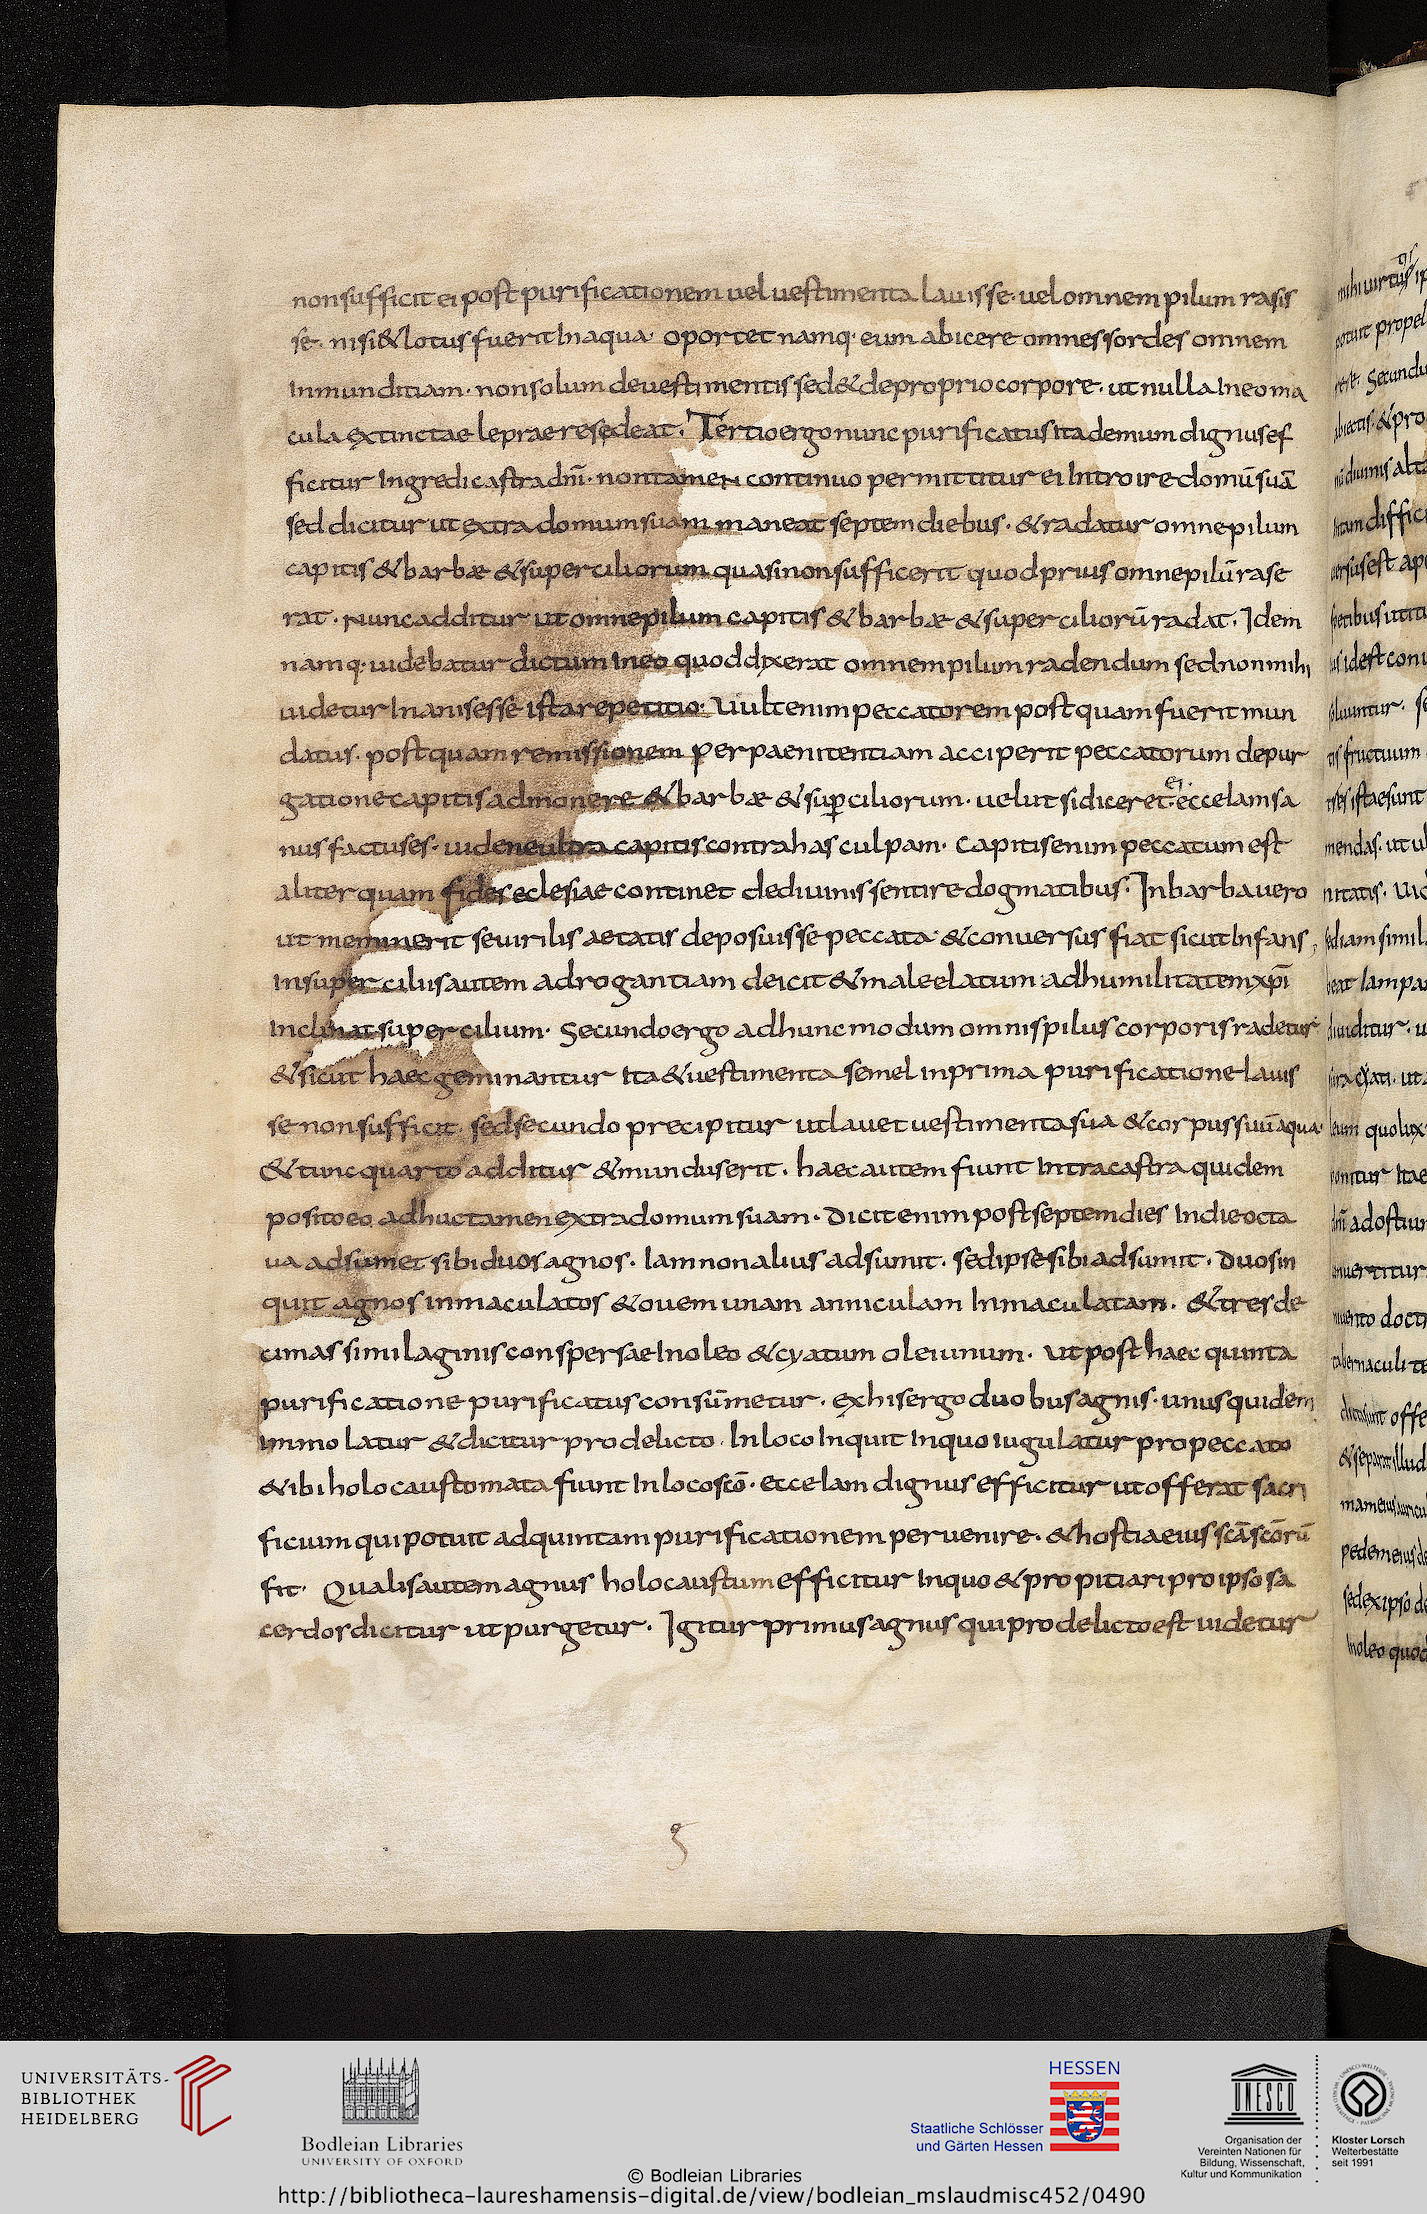 non sufficit ei post purificationem uel uestimenta lauisse · uel omnem pilum rasis
se · nisi & lotus fuerit In aqua · oportet namq· eum abicere omnes sordes omnem
Inmunditiam · non solum de uestimentis sed & de proprio corpore · ut nulla In eo ma
cula extinctae leprae resedeat · Tertio ergo nunc purificatus ita demum dignus ef
ficitur Ingredi castra dnī · non tamen continuo permittitur ei Introire domū suā
sed dicitur ut extra domum suam maneat septem diebus · & radatur omne pilum
capitis & barbæ & superciliorum quasi non sufficerit quod prius omne pilū rase
rat · Nunc additur ut omne pilum capitis & barbæ & superciliorū radat · Idem
namq· uidebatur dictum In eo quod dixerat omnem pilum radendum sed non mihi
uidetur Inanis esse ista repetitio · Uult enim peccatorem postquam fuerit mun
datus · postquam remissionem per paenitentiam acciperit peccatorum depur
gatione capitis admonere & barbæ & sup̱ciliorum · uelut si diceret ei · ecce Iam sa
nus factus es · uide ne ultra capitis contrahas culpam · Capitis enim peccatum est
aliter quam fides eclesiae continet de diuinis sentire dogmatibus · In barba uero
ut meminerit se uirilis aetatis deposuisse peccata · & conuersus fiat sicut Infans ,
In superciliis autem adrogantiam deicit & male elatum ad humilitatem xp̄i
Inclinat supercilium · Secundo ergo ad hunc modum omnis pilus corporis radetur
& sicut haec geminantur Ita & uestimenta semel in prima purificatione lauis
se non sufficit · sed secundo precipitur ut lauet uestimenta sua & corpus suū aqua
& tunc quarto additur & mundus erit · haec autem fiunt Intra castra quidem
posito eo adhuc tamen extra domum suam · Dicit enim post septem dies In die octa
ua adsumet sibi duos agnos · Iam non alius adsumit · sed ipse sibi adsumit · Duos in
quit agnos inmaculatos & ouem unam anniculam Inmaculatam · & tres de
cimas similaginis conspersae In oleo & cyatum olei unum · Ut post haec quinta
purificatione purificatus consūmetur · ex his ergo duobus agnis · unus quidem
immolatur & dicitur pro delicto · In loco Inquit In quo iugulatur pro peccato
& ibi holocaustomata fiunt In loco scō · ecce Iam dignus efficitur ut offerat sacri
ficium qui potuit ad quintam purificationem peruenire · & hostia eius scā scōrū
fit · Qualis autem agnus holocaustum efficitur In quo & propitiari pro ipso sa
cerdos dicitur ut purgetur · Igitur primus agnus qui pro delicto est uidetur
UNIVERSITÄTS-
BIBLIOTHEK
HEIDELBERG
Bodleian Libraries
UNIVERSITY OF OXFORD
HESSEN
Staatliche Schlösser
und Gärten Hessen
UNESCO
Organisation der
Vereinten Nationen für
Bildung, Wissenschaft,
Kultur und Kommunikation
Kloster Lorsch
Welterbestätte
seit 1991
© Bodleian Libraries
http://bibliotheca-laureshamensis-digital.de/view/bodleian_mslaudmisc452/0490